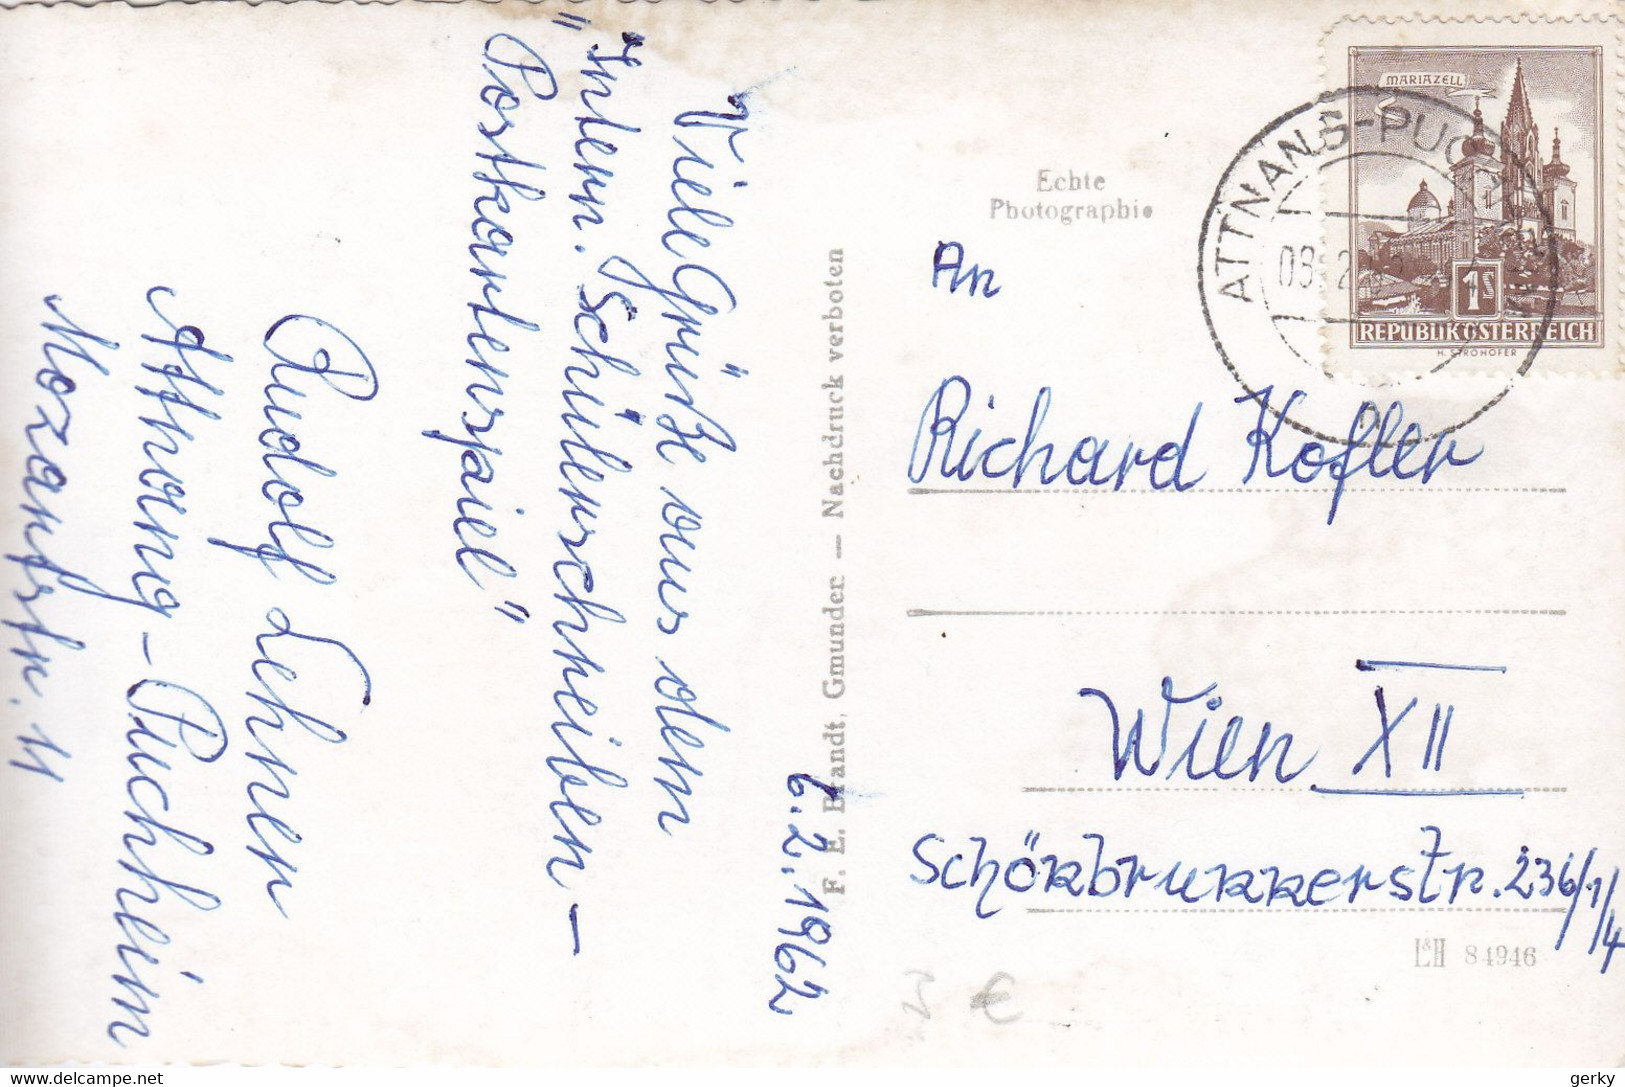 6.2.1962
Viele Grüße aus dem
"Intern. Schülerschreiben –
Postkartenspiel"
Rudolf Lehner
Attnang-Puchheim
Mozartstr. 11
F. E. Brandt, Gmunden — Nachdruck verboten
Echte
Photographie
MARIAZELL
1S
REPUBLIK ÖSTERREICH
H. STROHOFER
ATTNANG-PUCH
An
Richard Kofler
Wien XII
Schönbrunnerstr. 236/1/4
L&H 84946
€
delcampe.net
gerky